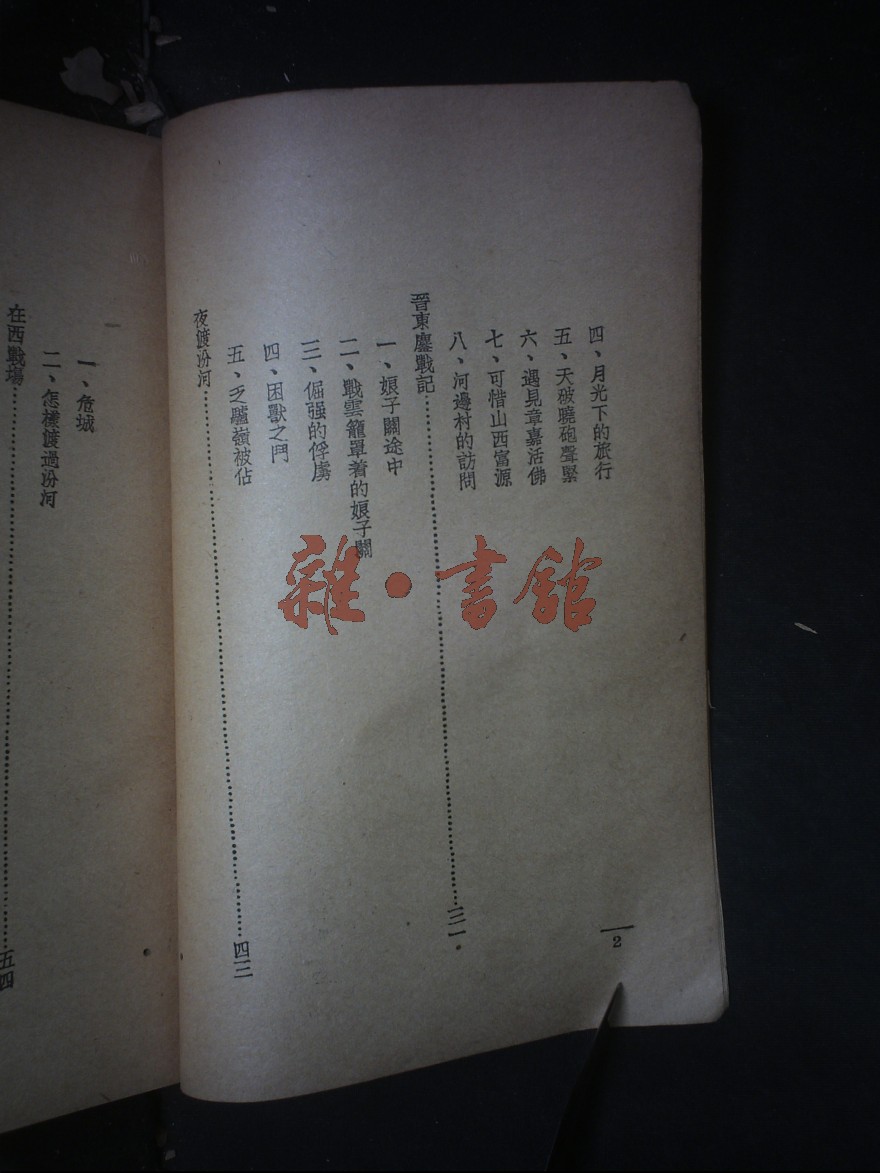 四、月光下的旅行
五、天破曉砲聲緊
六、遇見章嘉活佛
七、可惜山西富源
八、河邊村的訪問
晉東鏖戰記……三一
一、娘子關途中
二、戰雲籠罩着的娘子關
三、倔强的俘虜
四、困獸之鬥
五、乏驢嶺被佔
夜渡汾河……四三
2
一、危城
二、怎樣渡過汾河
在西戰場……五四
雜·書館